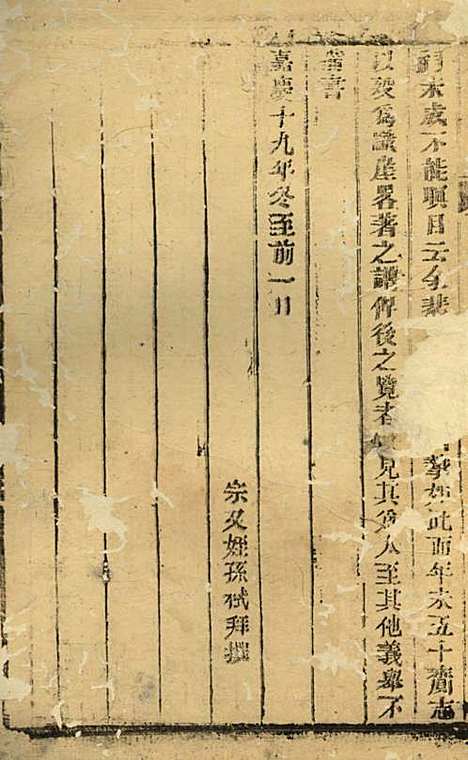 未成不能瞑目云余悲摯如此而年未五十齎志
以歿為識崖畧著之譜俾後之覽者見其為人至其他義舉不
書
嘉慶十九年冬至前一日
宗又姪孫拜撰